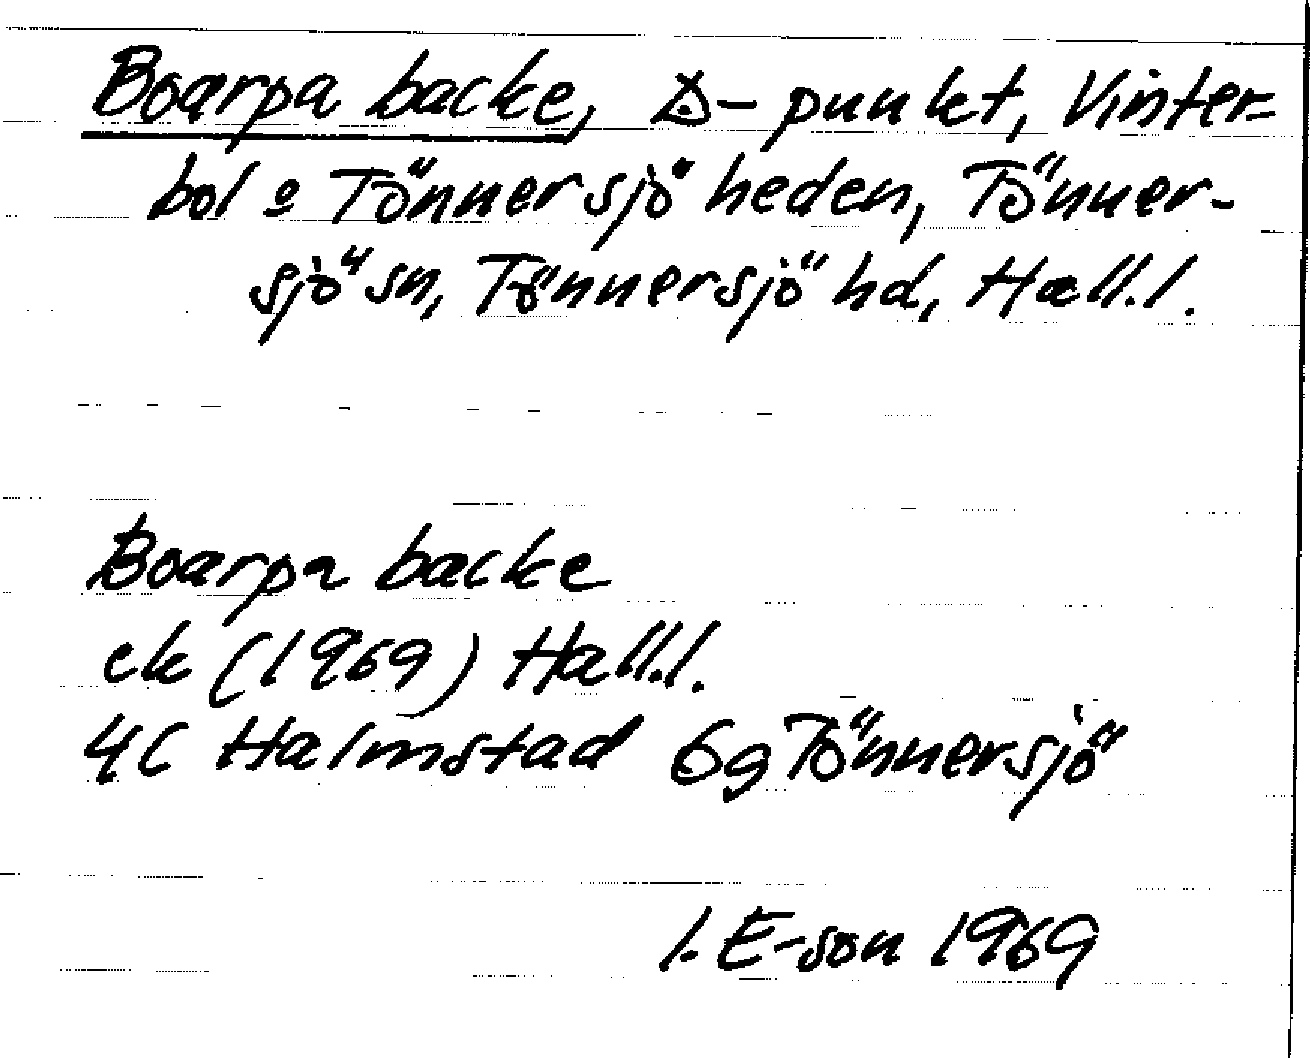 Boarpa backe, △-punkt, Vinter-
bol o Tönnersjöheden, Tönner-
sjö sn, Tönnersjö hd, Hall.l.
Boarpa backe
ek (1969) Hall.l.
4C Halmstad 6g Tönnersjö
I. E-son 1969